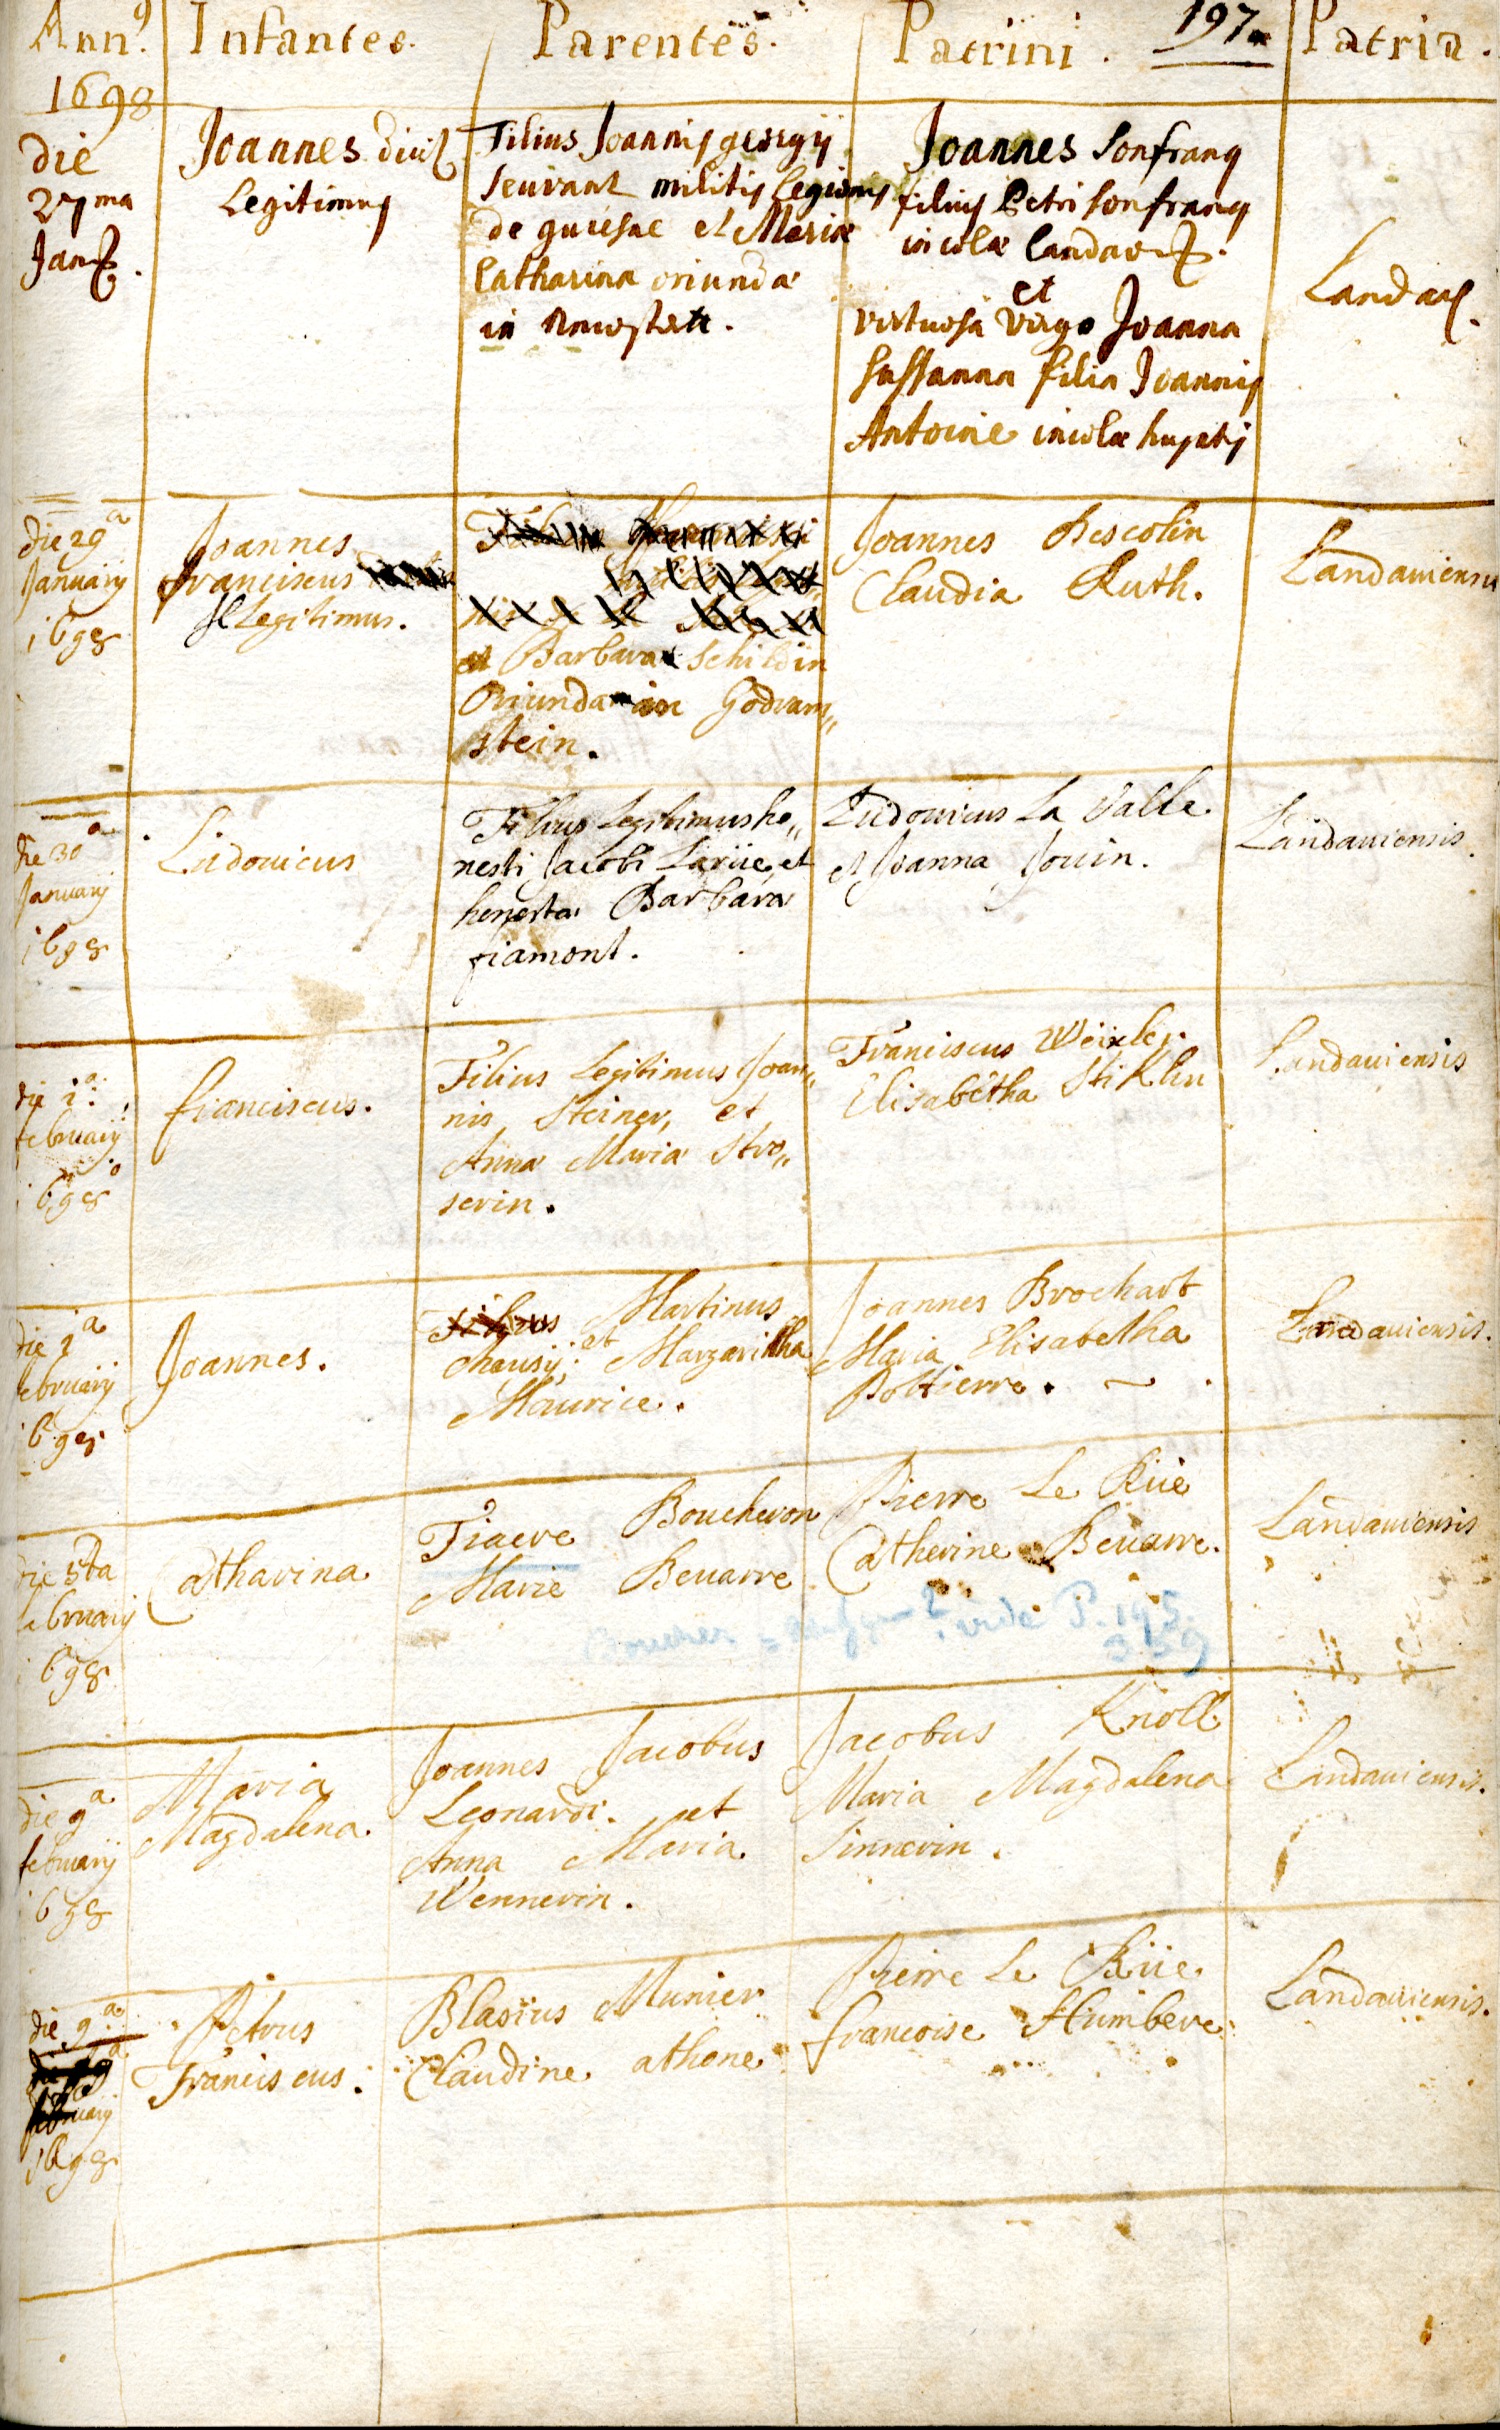 Ann⁹ Infantes. Parentes. Patrini. 197. Patria.
1698
die
27ma
Jan
Joannes
Legitimus
Filius Joannis georgij
militis Legionis
de et Mariæ
Catharina oriunda
in
Joannes Sonfranq
filius Petri Sonfranq
incolæ
et
virtuosa virgo Joanna
Sussanna filia Joannis
Antoine incolæ hujatis
Landau
die 29a
January
1698
Joannes
Franciscus
Legitimus.
et Barbara Schildin
Oriunda in Godram„
stein.
Joannes Bescolin
Claudia Ruth.
Landauiensis
die 30a
January
1698
Ludouicus
Filius Legitimus ho„
nesti Jacobi Lariie, et
honesta Barbara
fiamont.
Ludouicus La Valle.
et Joanna Jouin.
Landauiensis.
die 1a
february
1698
franciscus.
Filius Legitimus Joan„
nis Steiner, et
Anna Maria Stro„
serin.
Franciscus Weixler.
Elisabetha Stiklin
Landauiensis
die 1a
february
1698
Joannes.
Filius Martinus
et Margaritha
Maurice.
Joannes Brochart
Maria Elisabetha
Poltierre.
Landauiensis.
die 5ta
february
1698
Catharina
Fiacre Boucheron
Marie Beuarre
Pierre Le Riie
Catherine Beuarre.
vide P. 195.
359
Landauiensis
die 9a
february
1698
Maria
Magdalena.
Joannes Jacobus
Leonardi. et
Anna Maria
Wennerin.
Jacobus Knoll
Maria Magdalena
Sinnerin.
Landauiensis.
die 9a
february
1698
Petrus
Franciscus.
Blasius Munier
Claudine athone
Pierre Le Riie
francoise Humbere.
Landauiensis.